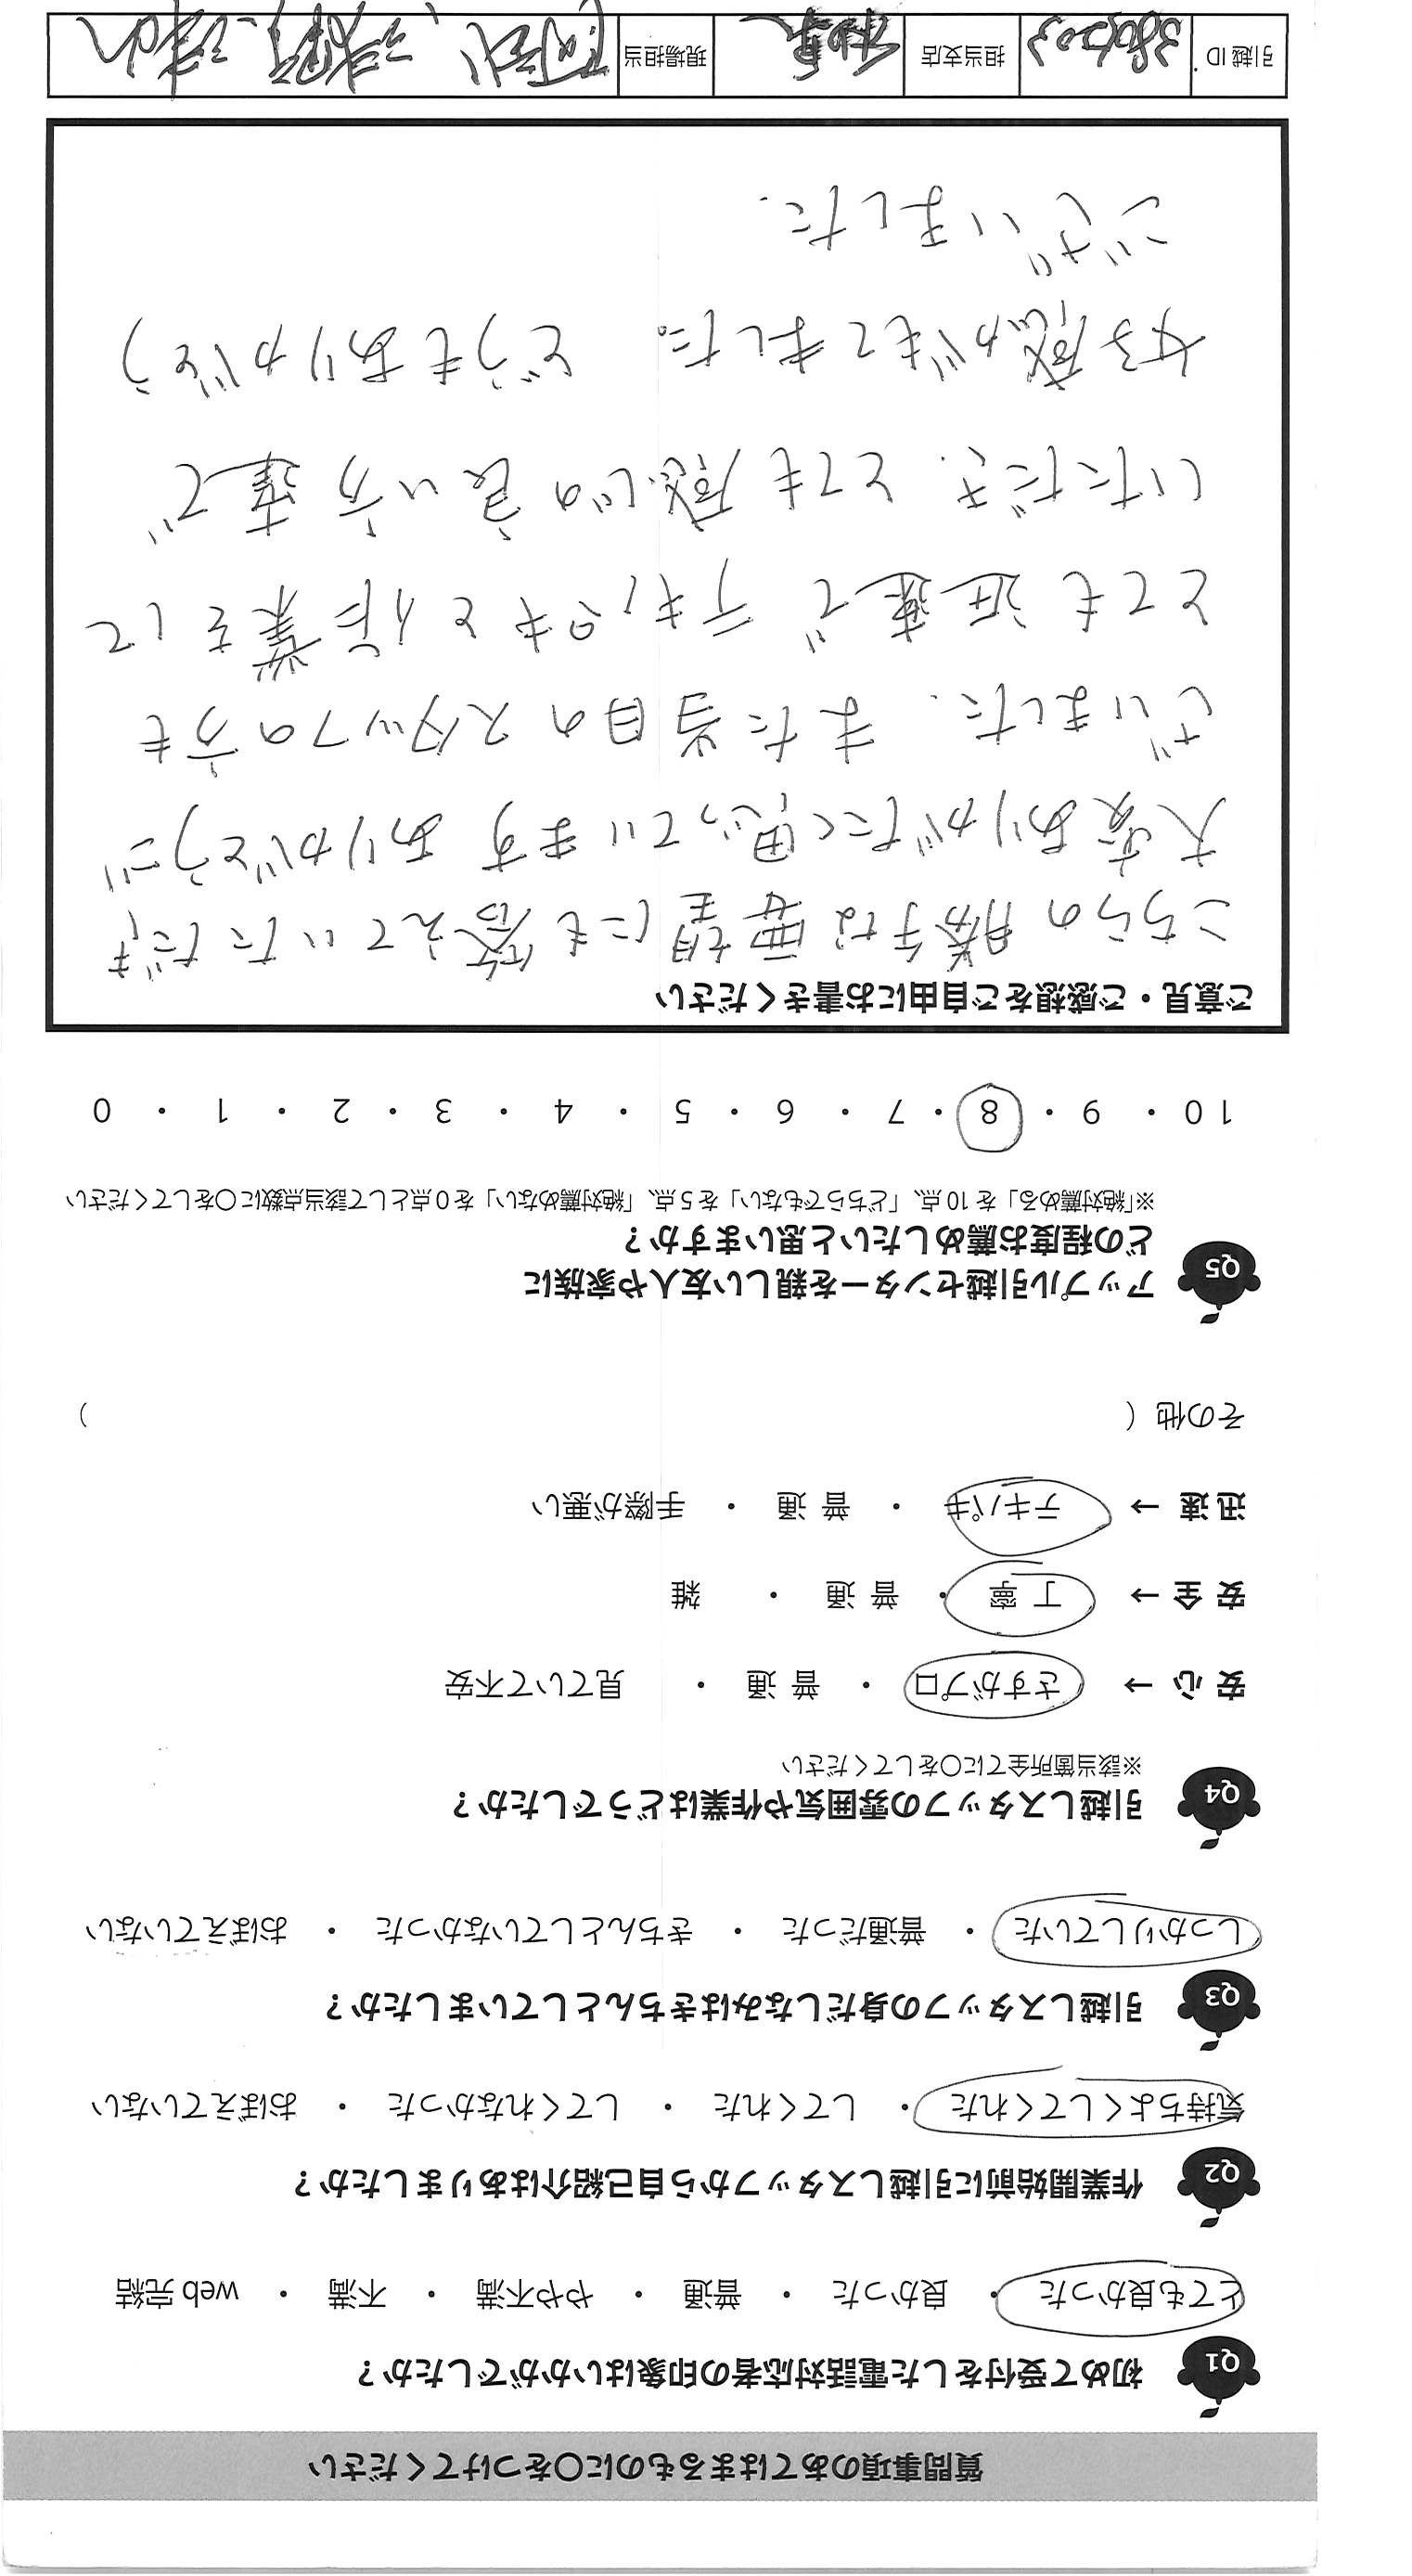 質問事項のあてはまるものに○をつけてください
Q1 初めて受付をした電話対応者の印象はいかがでしたか？
とても良かった ・ 良かった ・ 普通 ・ やや不満 ・ 不満 ・ web 完結
Q2 作業開始前に引越しスタッフから自己紹介はありましたか？
気持ちよくしてくれた ・ してくれた ・ してくれなかった ・ おぼえていない
Q3 引越しスタッフの身だしなみはきちんとしていましたか？
しっかりしていた ・ 普通だった ・ きちんとしていなかった ・ おぼえていない
Q4 引越しスタッフの雰囲気や作業はどうでしたか？
※該当箇所全てに○をしてください
安 心 → さすがプロ ・ 普 通 ・ 見ていて不安
安 全 → 丁 寧 ・ 普 通 ・ 雑
迅 速 → テキパキ ・ 普 通 ・ 手際が悪い
その他（ ）
Q5 アップル引越センターを親しい友人や家族に
どの程度お薦めしたいと思いますか？
※「絶対薦める」を 10 点、「どちらでもない」を 5 点、「絶対薦めない」を 0 点として該当点数に○をしてください
10 ・ 9 ・ 8 ・ 7 ・ 6 ・ 5 ・ 4 ・ 3 ・ 2 ・ 1 ・ 0
ご意見・ご感想をご自由にお書きください
こちらの勝手な要望にも答えていただき
大変ありがたく思っています ありがとうご
ざいました. また当日のスタッフの方も
とても迅速で テキパキと作業をして
いただき、とても感じの良い方達で
好感がもてました。 どうもありがとう
ございました.
引越 ID
担当支店
現場担当